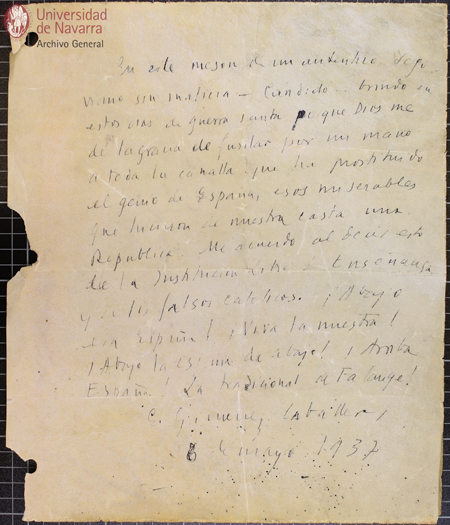 Universidad
de Navarra
Archivo General
En este meson de un autentico Sego-
viano sin malicia - Candido - brindo en
estos dias de guerra santa pa que Dios me
de la gracia de fusilar por mi mano
a toda la canalla que ha prostituido
el genio de España, esos miserables
que hicieron de nuestra casta una
Republica. Me acuerdo al decir esto
de la Institucion Libre de Enseñanza
y de los falsos catolicos. ¡Abajo
su España! ¡Viva la nuestra!
¡Abajo la de abajo! ¡Arriba
España! La tradicional de Falange!
E. Gimenez Caballero
8 de mayo 1937